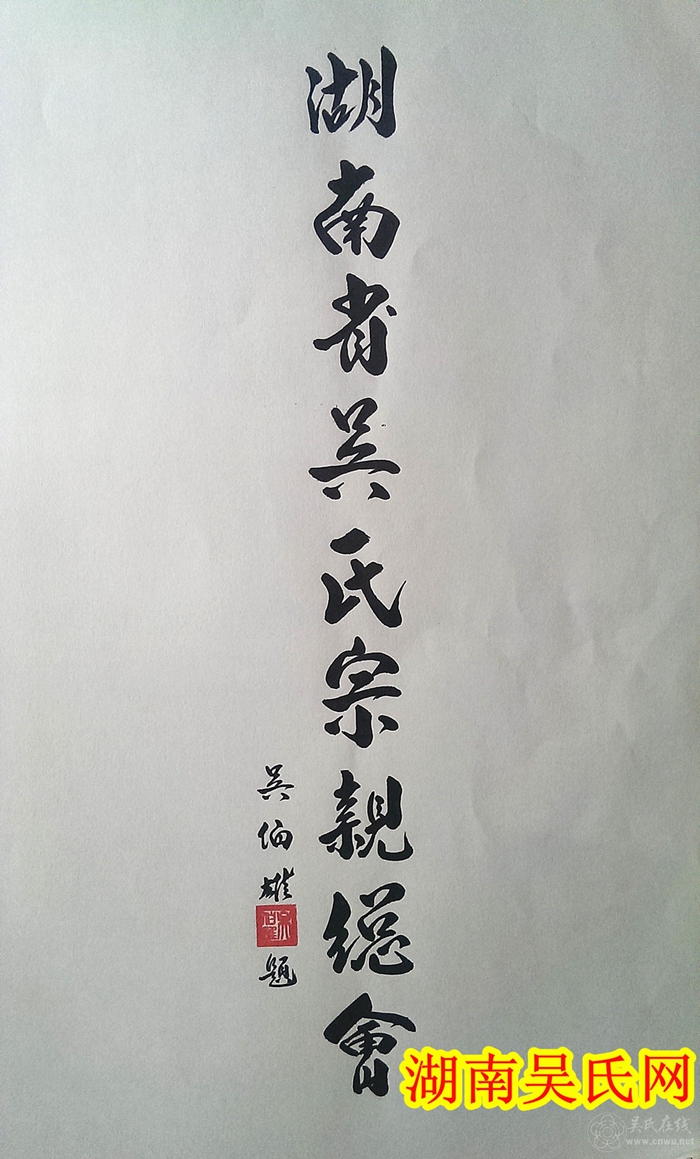 湖南省吴氏宗親總會
吴伯雄題
湖南吴氏网
吴氏在线
www.cnwu.net